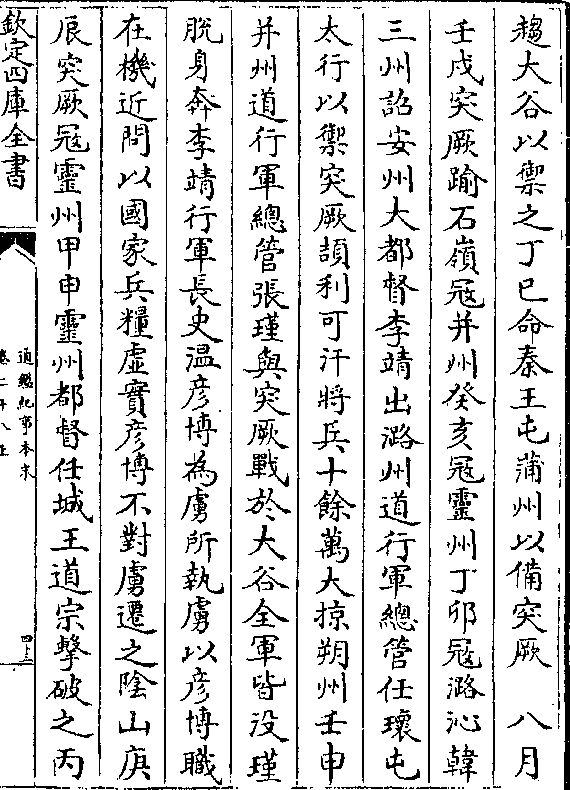 趨大谷以禦之丁巳命秦王屯蒲州以備突厥　八月
壬戌突厥踰石嶺寇并州癸亥寇靈州丁卯寇潞沁韓
三州詔安州大都督李靖出潞州道行軍總管任瓌屯
太行以禦突厥頡利可汗將兵十餘萬大掠朔州壬申
并州道行軍總管張瑾與突厥戰於大谷全軍皆没瑾
脱身奔李靖行軍長史温彦博為虜所執虜以彦博職
在機近問以國家兵糧虚實彦博不對虜遷之陰山庚
辰突厥寇靈州甲申靈州都督任城王道宗擊破之丙
欽定四庫全書
通鑑紀事本末